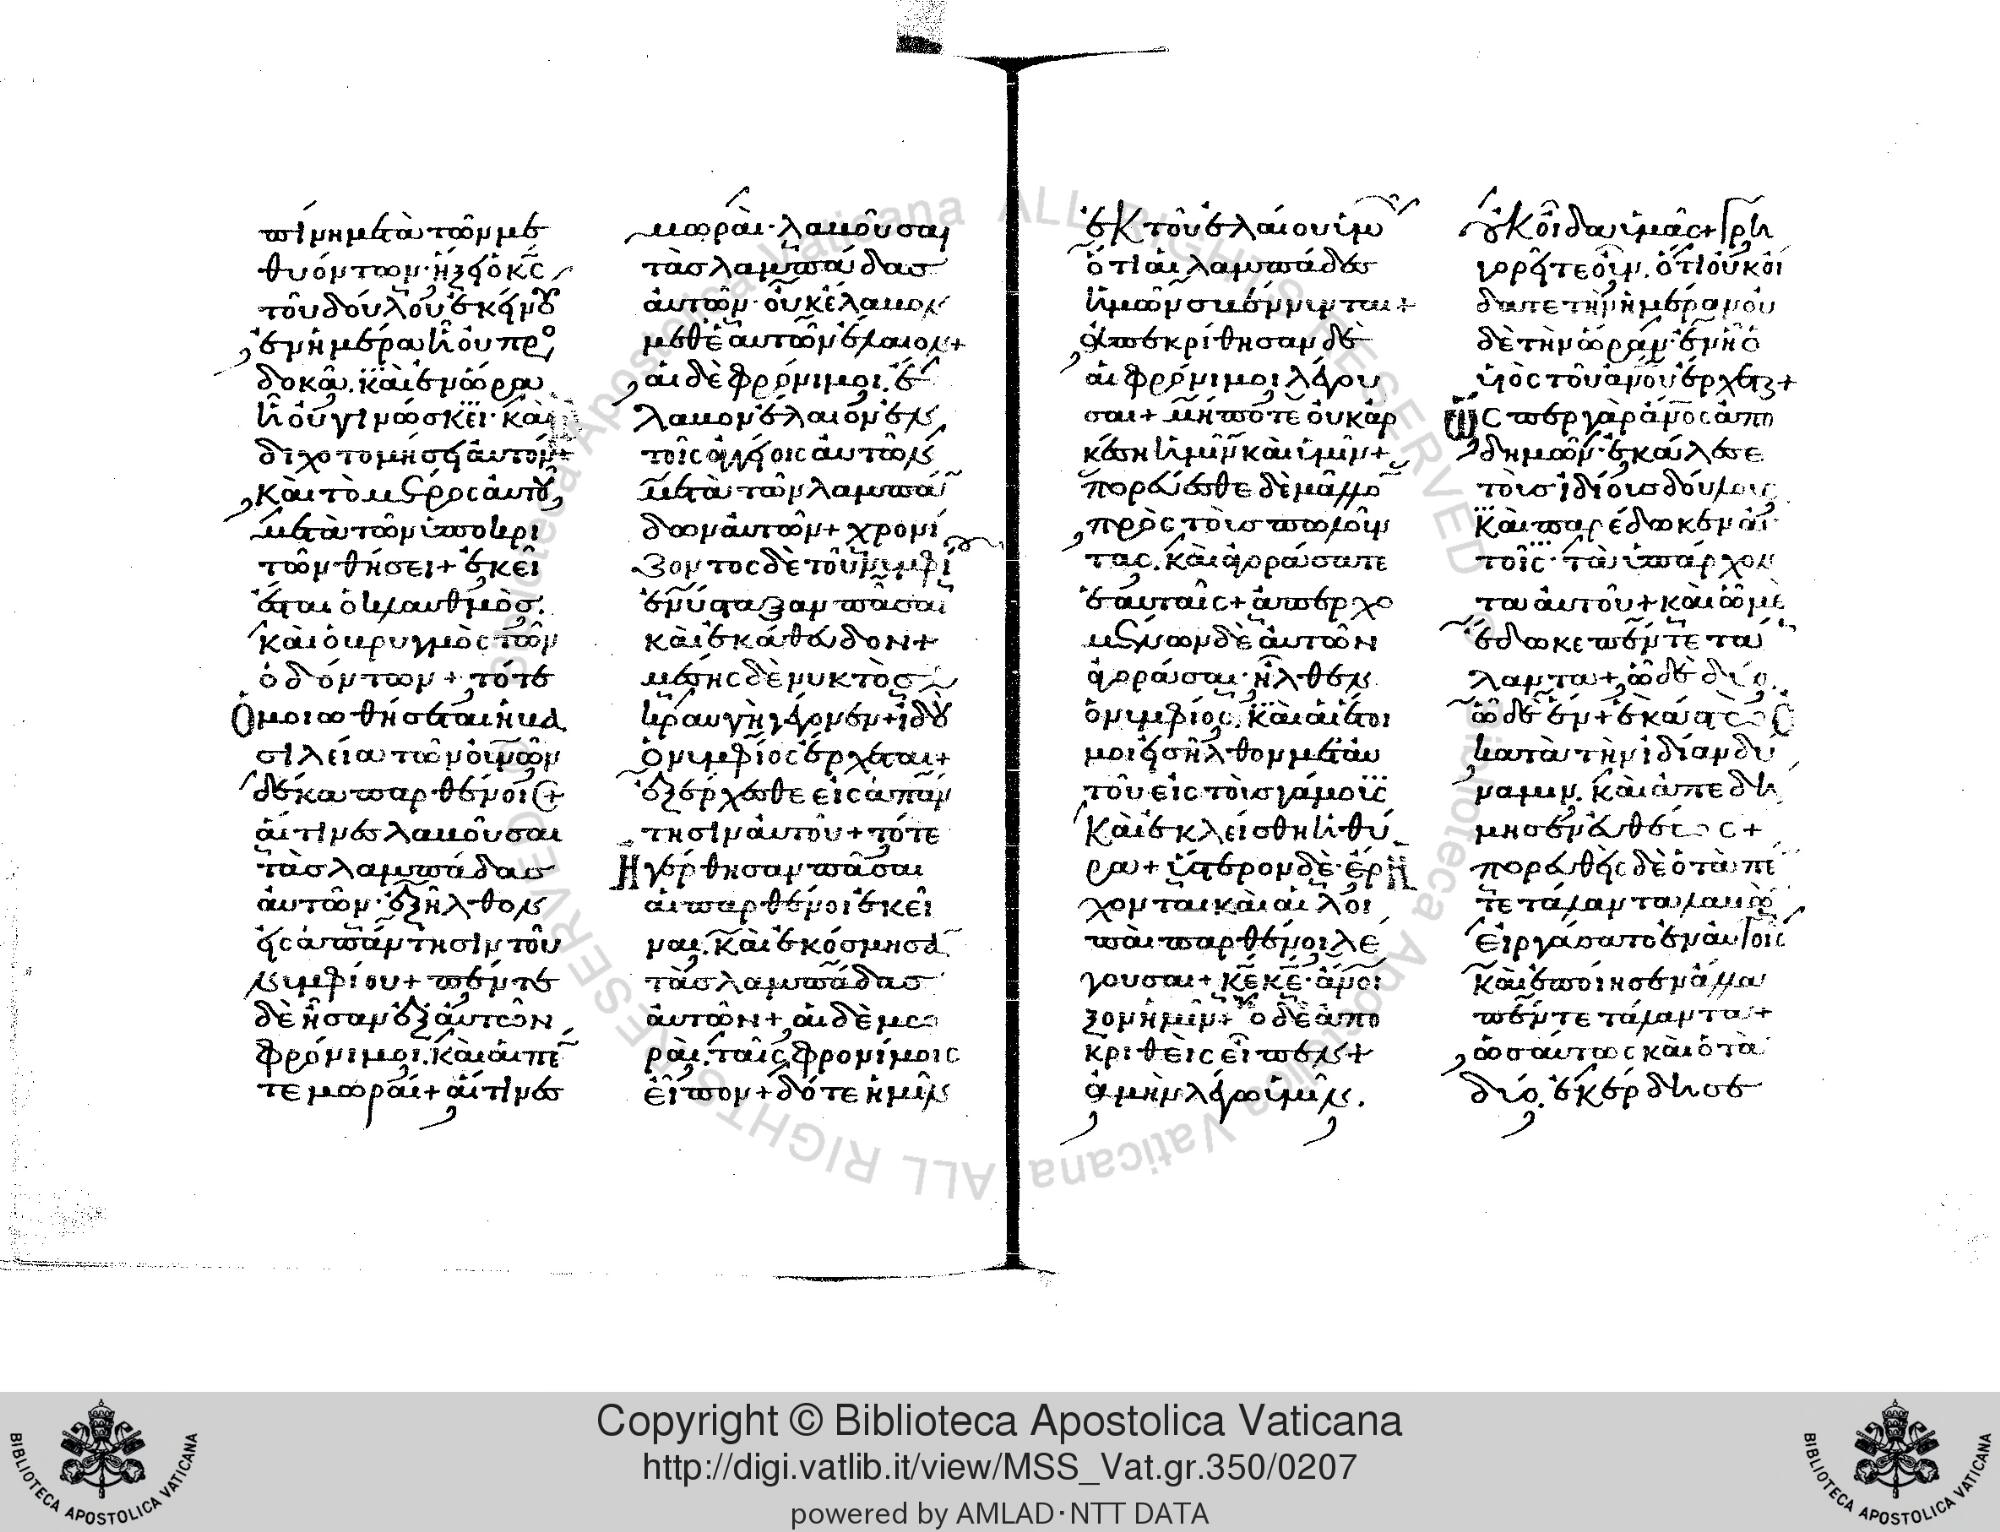 πίνη μετὰ τῶν με
θυόντων· ἥξει ὁ κς
τοῦ δούλου ἐκείνου
ἐν ἡμέρα ἧ οὐ προσ
δοκᾶ. καὶ ἐν ὥρα
ἧ οὐ γινώσκει· καὶ
διχοτομήσει αὐτόν+
καὶ τὸ μέρος αὐτοῦ
μετὰ τῶν ὑποκρι
τῶν θήσει+ ἐκεῖ
ἔσται ὁ κλαυθμὸσ.
καὶ ὁ βρυγμὸς τῶν
ὀδόντων+ τότε
Ὁμοιωθήσεται ἡ βα
σιλεία τῶν οὐνῶν
δέκα παρθένοις+
αἵτινες λαβοῦσαι
τὰσ λαμπάδασ
αὐτῶν· ἐξῆλθον
εἰς ἀπάντησιν τοῦ
νυμφίου+ πέντε
δὲ ἦσαν ἐξ αὐτῶν
φρόνιμοι. καὶ αἱ πέ
τε μωραί+ αἵτινες
μωραὶ· λαβοῦσαι
τὰσ λαμπάδασ
αὐτῶν· οὐκ ἔλαβον
μεθ ἑαυτῶν ἔλαιον+
αἱ δὲ φρόνιμοι. ἔ
λαβον ἔλαιον ἐν
τοῖς ἀγγείοις αὐτῶν
μετὰ τῶν λαμπά
δων αὐτῶν+ χρονί
ζοντος δὲ τοῦ νυμφί
ἐνύσταξαν πᾶσαι
καὶ ἐκάθευδον+
μέσης δὲ νυκτὸσ
κραυγὴ γέγονεν+ ἰδοὺ
ὁ νυμφίος ἔρχεται+
ἐξέρχεσθε εἰς ἀπάν
τησιν αὐτοῦ+ τότε
Ἠγέρθησαν πᾶσαι
αἱ παρθένοι ἐκεῖ
ναι. καὶ ἐκόσμησα
τὰσ λαμπάδασ
αὐτῶν+ αἱ δὲ μω
ραὶ. ταῖς φρονίμοις
εἶπον+ δότε ἡμῖν
ἐκ τοῦ ἐλαίου ὑμῶν
ὅτι αἱ λαμπάδες
ἡμῶν σβέννυνται+
ἀπεκρίθησαν δὲ
αἱ φρόνιμοι λέγου
σαι+ μήποτε οὐκ ἀρ
κέση ἡμῖν καὶ ὑμῖν+
πορεύεσθε δὲ μᾶλλο
πρὸς τοὺσ πωλοῦν
τας. καὶ ἀγοράσατε
ἑαυταῖς+ ἀπερχο
μένων δὲ αὐτῶν
ἀγοράσαι· ἦλθεν
ὁ νυμφίος. καὶ αἱ ἕτοι
μοι εἰσῆλθον μετ αὐ
τοῦ εἰς τοὺσ γάμους
καὶ ἐκλείσθη ἡ θύ
ρα+ ὕστερον δὲ· ἔρ
χονται καὶ αἱ λοι
παὶ παρθένοι λέ
γουσαι+ κε κε· ἄνοι
ξον ἡμῖν+ ὁ δὲ ἀπο
κριθεὶς εἶπεν+
ἀμὴν λέγω ὑμῖν.
οὐκ οἶδα ὑμᾶς+ γρη
γορεῖτε οὖν. ὅτι οὐκ οἴ
δατε τὴν ἡμέραν οὐ
δὲ τὴν ὥραν· ἐν ἧ ὁ
υἱὸς τοῦ ἀνου ἔρχεται+
Ὥσπερ γὰρ ἄνος ἀπο
δημῶν· ἐκάλεσε
τοὺσ ἰδίουσ δούλους
καὶ παρέδωκεν αὐ
τοῖς· τὰ ὑπάρχον
τα αὐτοῦ+ καὶ ὧ μὲ
ἔδωκε πέντε τά
λαντα+ ὧ δὲ δύο.
ὧ δὲ ἕν+ ἑκάστω
κατὰ τὴν ἰδίαν δύ
ναμιν. καὶ ἀπεδή
μησεν εὐθέως+
πορευθεὶς δὲ ὁ τὰ πέ
τε τάλαντα λαβὼ
εἰργάσατο ἐν αὐτοῖς
καὶ ἐποίησεν ἄλλα
πέντε τάλαντα+
ὡσαύτως καὶ ὁ τὰ
δύο. ἐκέρδησε
Copyright © Biblioteca Apostolica Vaticana
http://digi.vatlib.it/view/MSS_Vat.gr.350/0207
powered by AMLAD·NTT DATA
BIBLIOTECA APOSTOLICA VATICANA
BIBLIOTECA APOSTOLICA VATICANA